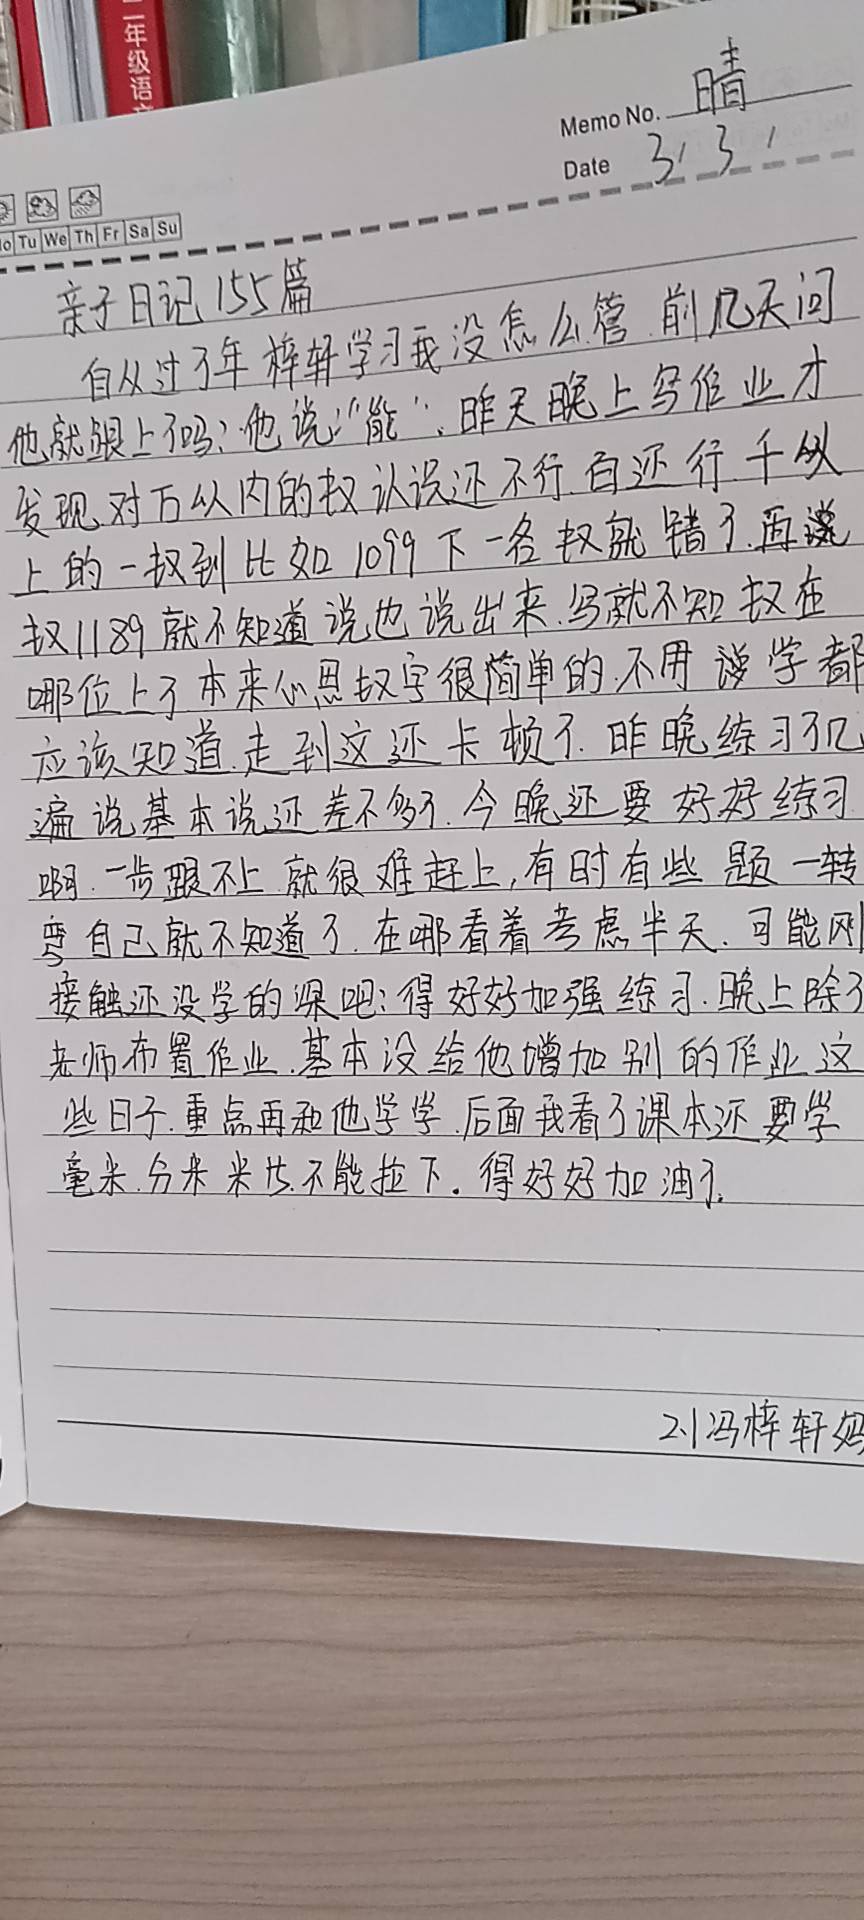 二年级语文
Memo No. 晴
Date 3.3.
Mo Tu We Th Fr Sa Su
亲子日记155篇
自从过了年梓轩学习我没怎么管.前几天问
他就跟上了吗?他说:"能".昨天晚上写作业才
发现.对万以内的数认识还不行.百还行.千以
上的一数到比如1099下一各数就错了.再说
数1189就不知道说也说出来.写就不知数在
哪位上了本来心思数字很简单的.不用说学都
应该知道.走到这还卡顿了.昨晚练习了几
遍说基本说还差不多了.今晚还要好好练习
啊.一步跟不上就很难赶上,有时有些题一转
弯自己就不知道了.在哪看着考虑半天.可能刚
接触还没学的深吧:得好好加强练习.晚上除了
老师布置作业.基本没给他增加别的作业这
些日子.重点再和他学学.后面我看了课本还要学
毫米.分米米 .不能拉下。得好好加油了.
2.1冯梓轩妈